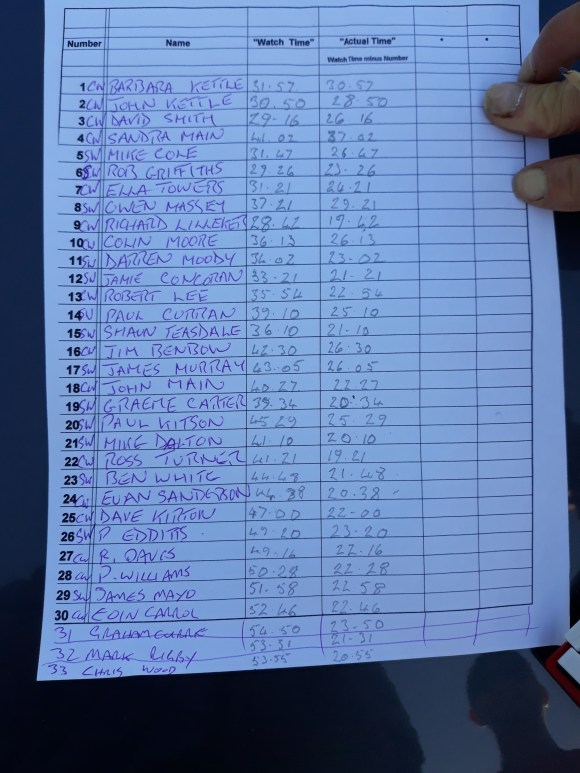 Number Name "Watch Time" "Actual Time" * *
Watch Time minus Number
1 CW BARBARA KETTLE 31.57 30.57
2 CW JOHN KETTLE 30.50 28.50
3 CW DAVID SMITH 29.16 26 16
4 CW SANDRA MAIN 41.02 37.02
5 SW MIKE COLE 31.47 26.47
6 SW ROB GRIFFITHS 29.26 23.26
7 CW ELLA TOWERS 31.21 24.21
8 SW OWEN MASSEY 37.21 29.21
9 CW RICHARD LILLEKER 28.42 19.42
10 CW COLIN MOORE 36.13 26.13
11 SW DARREN MOODY 34.02 23.02
12 SW JAMIE CONCORAN 33.21 21.21
13 CW ROBERT LEE 35.54 22.54
14 PAUL CURRAN 39.10 25.10
15 SW SHAUN TEASDALE 36.10 21.10
16 CW JIM BENBOW 42.30 26.30
17 SW JAMES MURRAY 43.05 26.05
18 CW JOHN MAIN 40.27 22.27
19 SW GRAEME CARTER 39.34 20.34
20 SW PAUL KITSON 45 29 25.29
21 SW MIKE DALTON 41.10 20.10
22 CW ROSS TURNER 41.21 19.21
23 SW BEN WHITE 44.48 21.48
24 CW EUAN SANDERSON 44.38 20.38
25 CW DAVE KIRTON 47.00 22-00
26 SW P EDDITTS 49.20 23.20
27 CW R. DAVIS 49.16 22.16
28 CW P. WILLIAMS 50.28 22.28
29 SW JAMES MAYO 51.58 22 58
30 CW EOIN CARROL 52.46 22.46
31 GRAHAM 54.50 23.50
32 MARK RIGBY 53.31 21.31
33 CHRIS WOOD 53.55 20.55